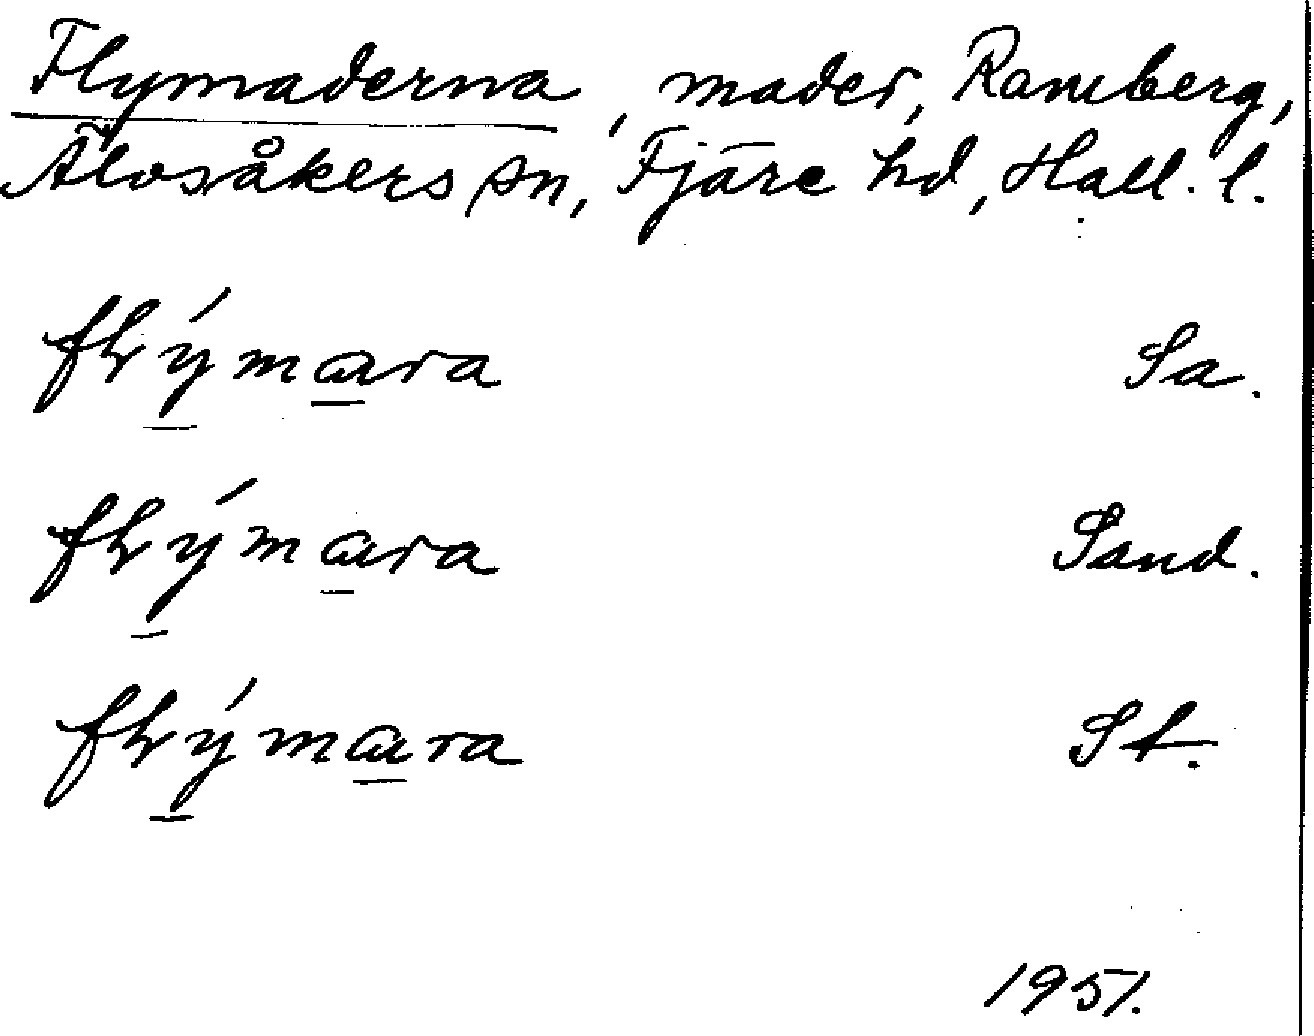 Flymaderna, mader, Ramberg,
Älvsåkers sn, Fjäre hd, Hall. l.
fłýmara Sa.
fłýmara Sand.
fłýmara St.
1951.